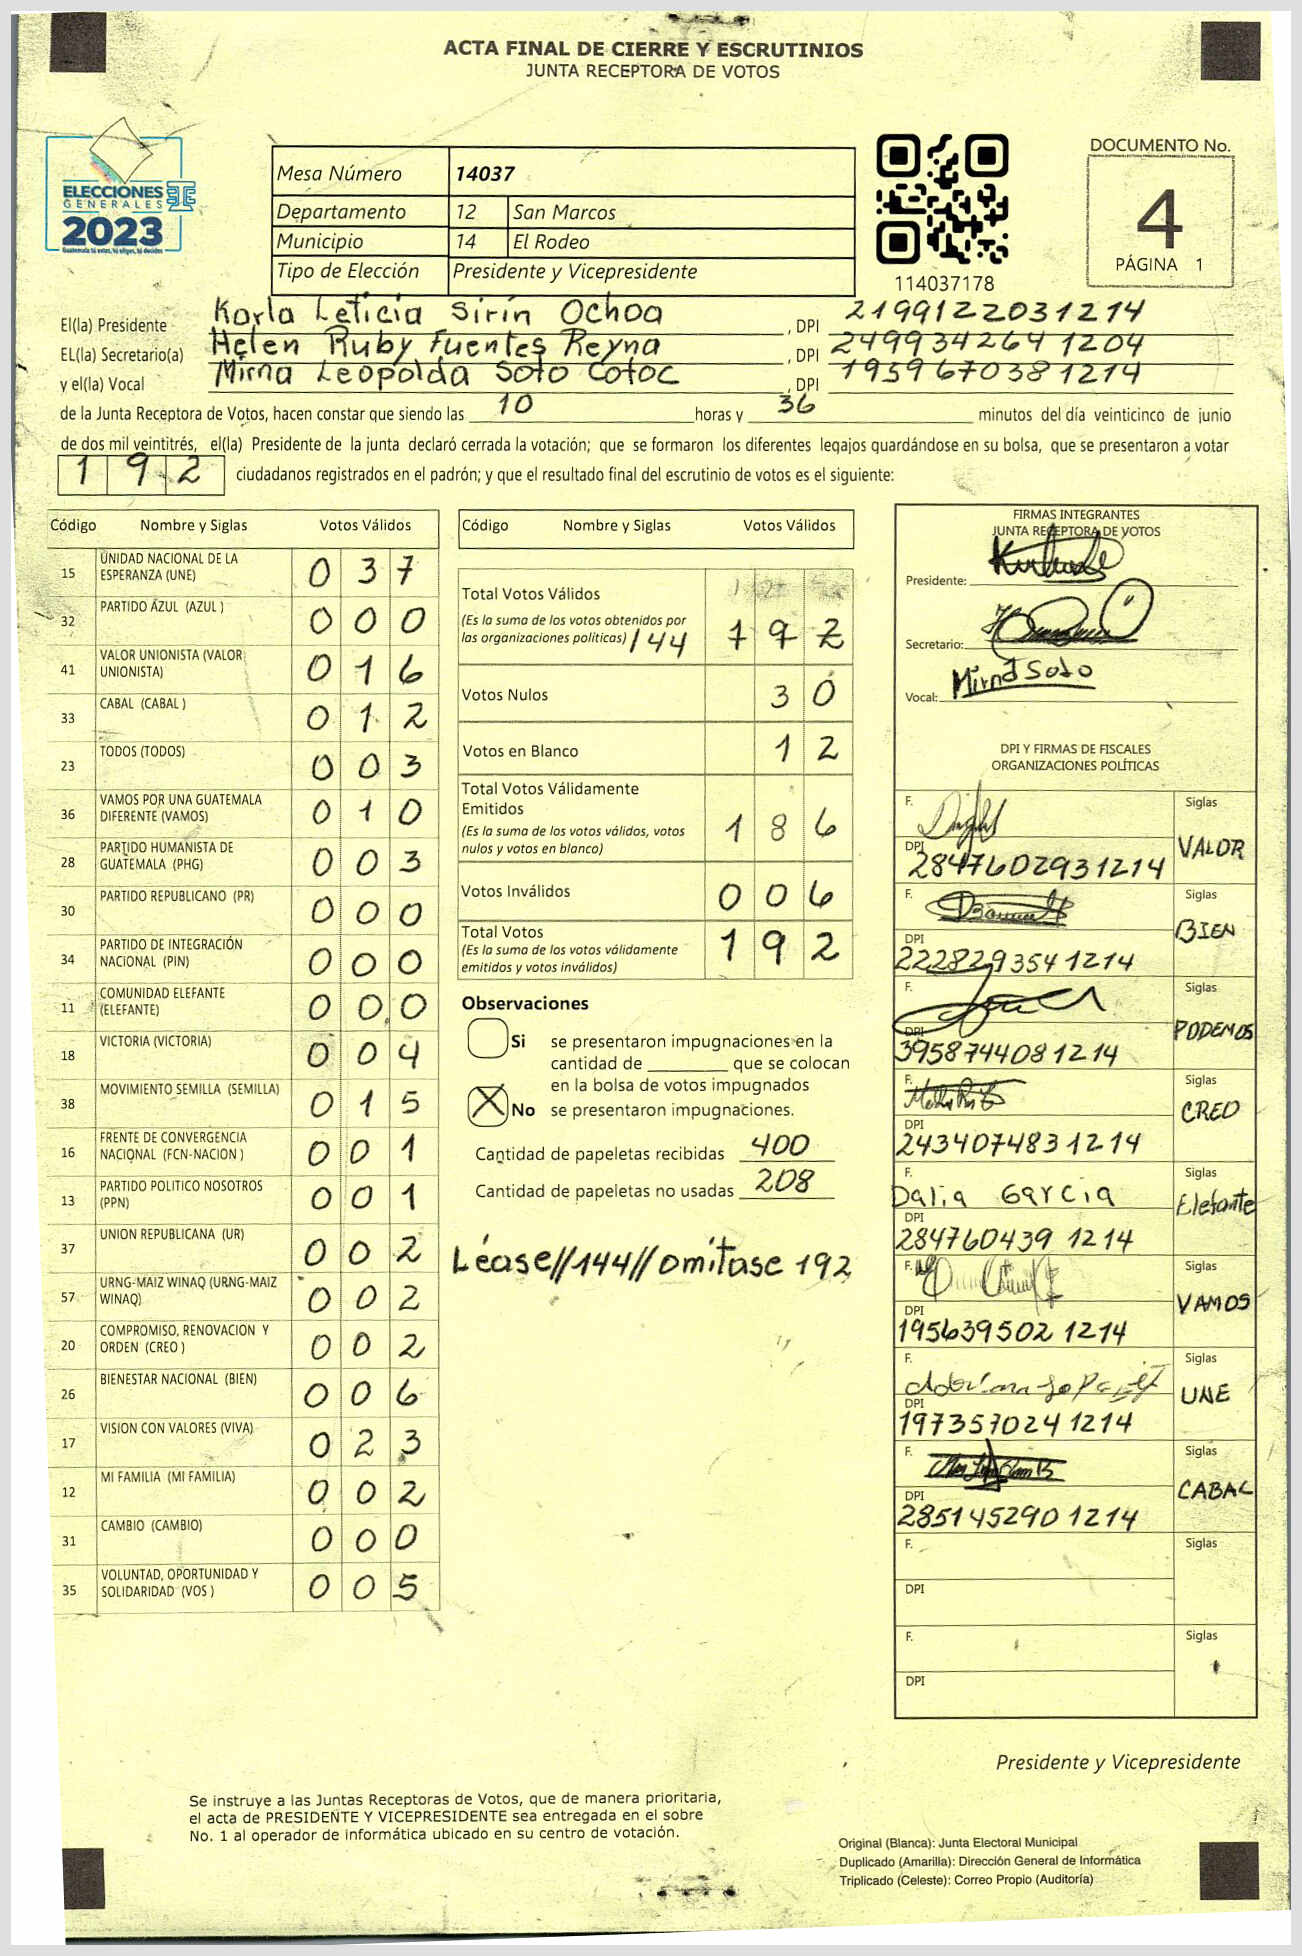 ACTA FINAL DE CIERRE Y ESCRUTINIOS
JUNTA RECEPTORA DE VOTOS
ELECCIONES
GENERALES
2023
Guatemala tú estas, tú eliges, tú decides
Mesa Número 14037
Departamento 12 San Marcos
Municipio 14 El Rodeo
Tipo de Elección Presidente y Vicepresidente
114037178
DOCUMENTO No.
4
PÁGINA 1
El(la) Presidente Karla Leticia Sirín Ochoa , DPI 2199122031214
EL(la) Secretario(a) Helen Ruby Fuentes Reyna , DPI 2499342641204
y el(la) Vocal Mirna Leopolda Soto Cotoc , DPI 1959670381214
de la Junta Receptora de Votos, hacen constar que siendo las 10 horas y 36 minutos del día veinticinco de junio
de dos mil veintitrés, el(la) Presidente de la junta declaró cerrada la votación; que se formaron los diferentes legajos guardándose en su bolsa, que se presentaron a votar
192 ciudadanos registrados en el padrón; y que el resultado final del escrutinio de votos es el siguiente:
Código Nombre y Siglas Votos Válidos
15 UNIDAD NACIONAL DE LA ESPERANZA (UNE) 037
32 PARTIDO AZUL (AZUL ) 000
41 VALOR UNIONISTA (VALOR UNIONISTA) 016
33 CABAL (CABAL ) 012
23 TODOS (TODOS) 003
36 VAMOS POR UNA GUATEMALA DIFERENTE (VAMOS) 010
28 PARTIDO HUMANISTA DE GUATEMALA (PHG) 003
30 PARTIDO REPUBLICANO (PR) 000
34 PARTIDO DE INTEGRACIÓN NACIONAL (PIN) 000
11 COMUNIDAD ELEFANTE (ELEFANTE) 000
18 VICTORIA (VICTORIA) 004
38 MOVIMIENTO SEMILLA (SEMILLA) 015
16 FRENTE DE CONVERGENCIA NACIONAL (FCN-NACION ) 001
13 PARTIDO POLITICO NOSOTROS (PPN) 001
37 UNION REPUBLICANA (UR) 002
57 URNG-MAIZ WINAQ (URNG-MAIZ WINAQ) 002
20 COMPROMISO, RENOVACION Y ORDEN (CREO ) 002
26 BIENESTAR NACIONAL (BIEN) 006
17 VISION CON VALORES (VIVA) 023
12 MI FAMILIA (MI FAMILIA) 002
31 CAMBIO (CAMBIO) 000
35 VOLUNTAD, OPORTUNIDAD Y SOLIDARIDAD (VOS ) 005
Código Nombre y Siglas Votos Válidos
Total Votos Válidos
(Es la suma de los votos obtenidos por
las organizaciones politicas) 144 192
Votos Nulos 30
Votos en Blanco 12
Total Votos Válidamente
Emitidos
(Es la suma de los votos válidos, votos
nulos y votos en blanco) 186
Votos Inválidos 006
Total Votos
(Es la suma de los votos válidamente
emitidos y votos inválidos) 192
Observaciones
Si se presentaron impugnaciones en la
cantidad de ________ que se colocan
en la bolsa de votos impugnados
No se presentaron impugnaciones.
Cantidad de papeletas recibidas 400
Cantidad de papeletas no usadas 208
Léase//144//omítase 192
FIRMAS INTEGRANTES
JUNTA RECEPTORA DE VOTOS
Presidente:
Secretario:
Vocal: Mirna Soto
DPI Y FIRMAS DE FISCALES
ORGANIZACIONES POLÍTICAS
F. Siglas
DPI 2847602931214 VALOR
F. Siglas
DPI 2228293541214 BIEN
F. Siglas
DPI 3958744081214 PODEMOS
F. Siglas
DPI 2434074831214 CREO
F. Dalia Garcia Siglas
DPI 2847604391214 Elefante
F. Siglas
DPI 1956395021214 VAMOS
F. Siglas
DPI 1973570241214 UNE
F. Siglas
DPI 2851452901214 CABAL
F. Siglas
DPI
F. Siglas
DPI
Presidente y Vicepresidente
Se instruye a las Juntas Receptoras de Votos, que de manera prioritaria,
el acta de PRESIDENTE Y VICEPRESIDENTE sea entregada en el sobre
No. 1 al operador de informática ubicado en su centro de votación.
Original (Blanca): Junta Electoral Municipal
Duplicado (Amarilla): Dirección General de Informática
Triplicado (Celeste): Correo Propio (Auditoría)